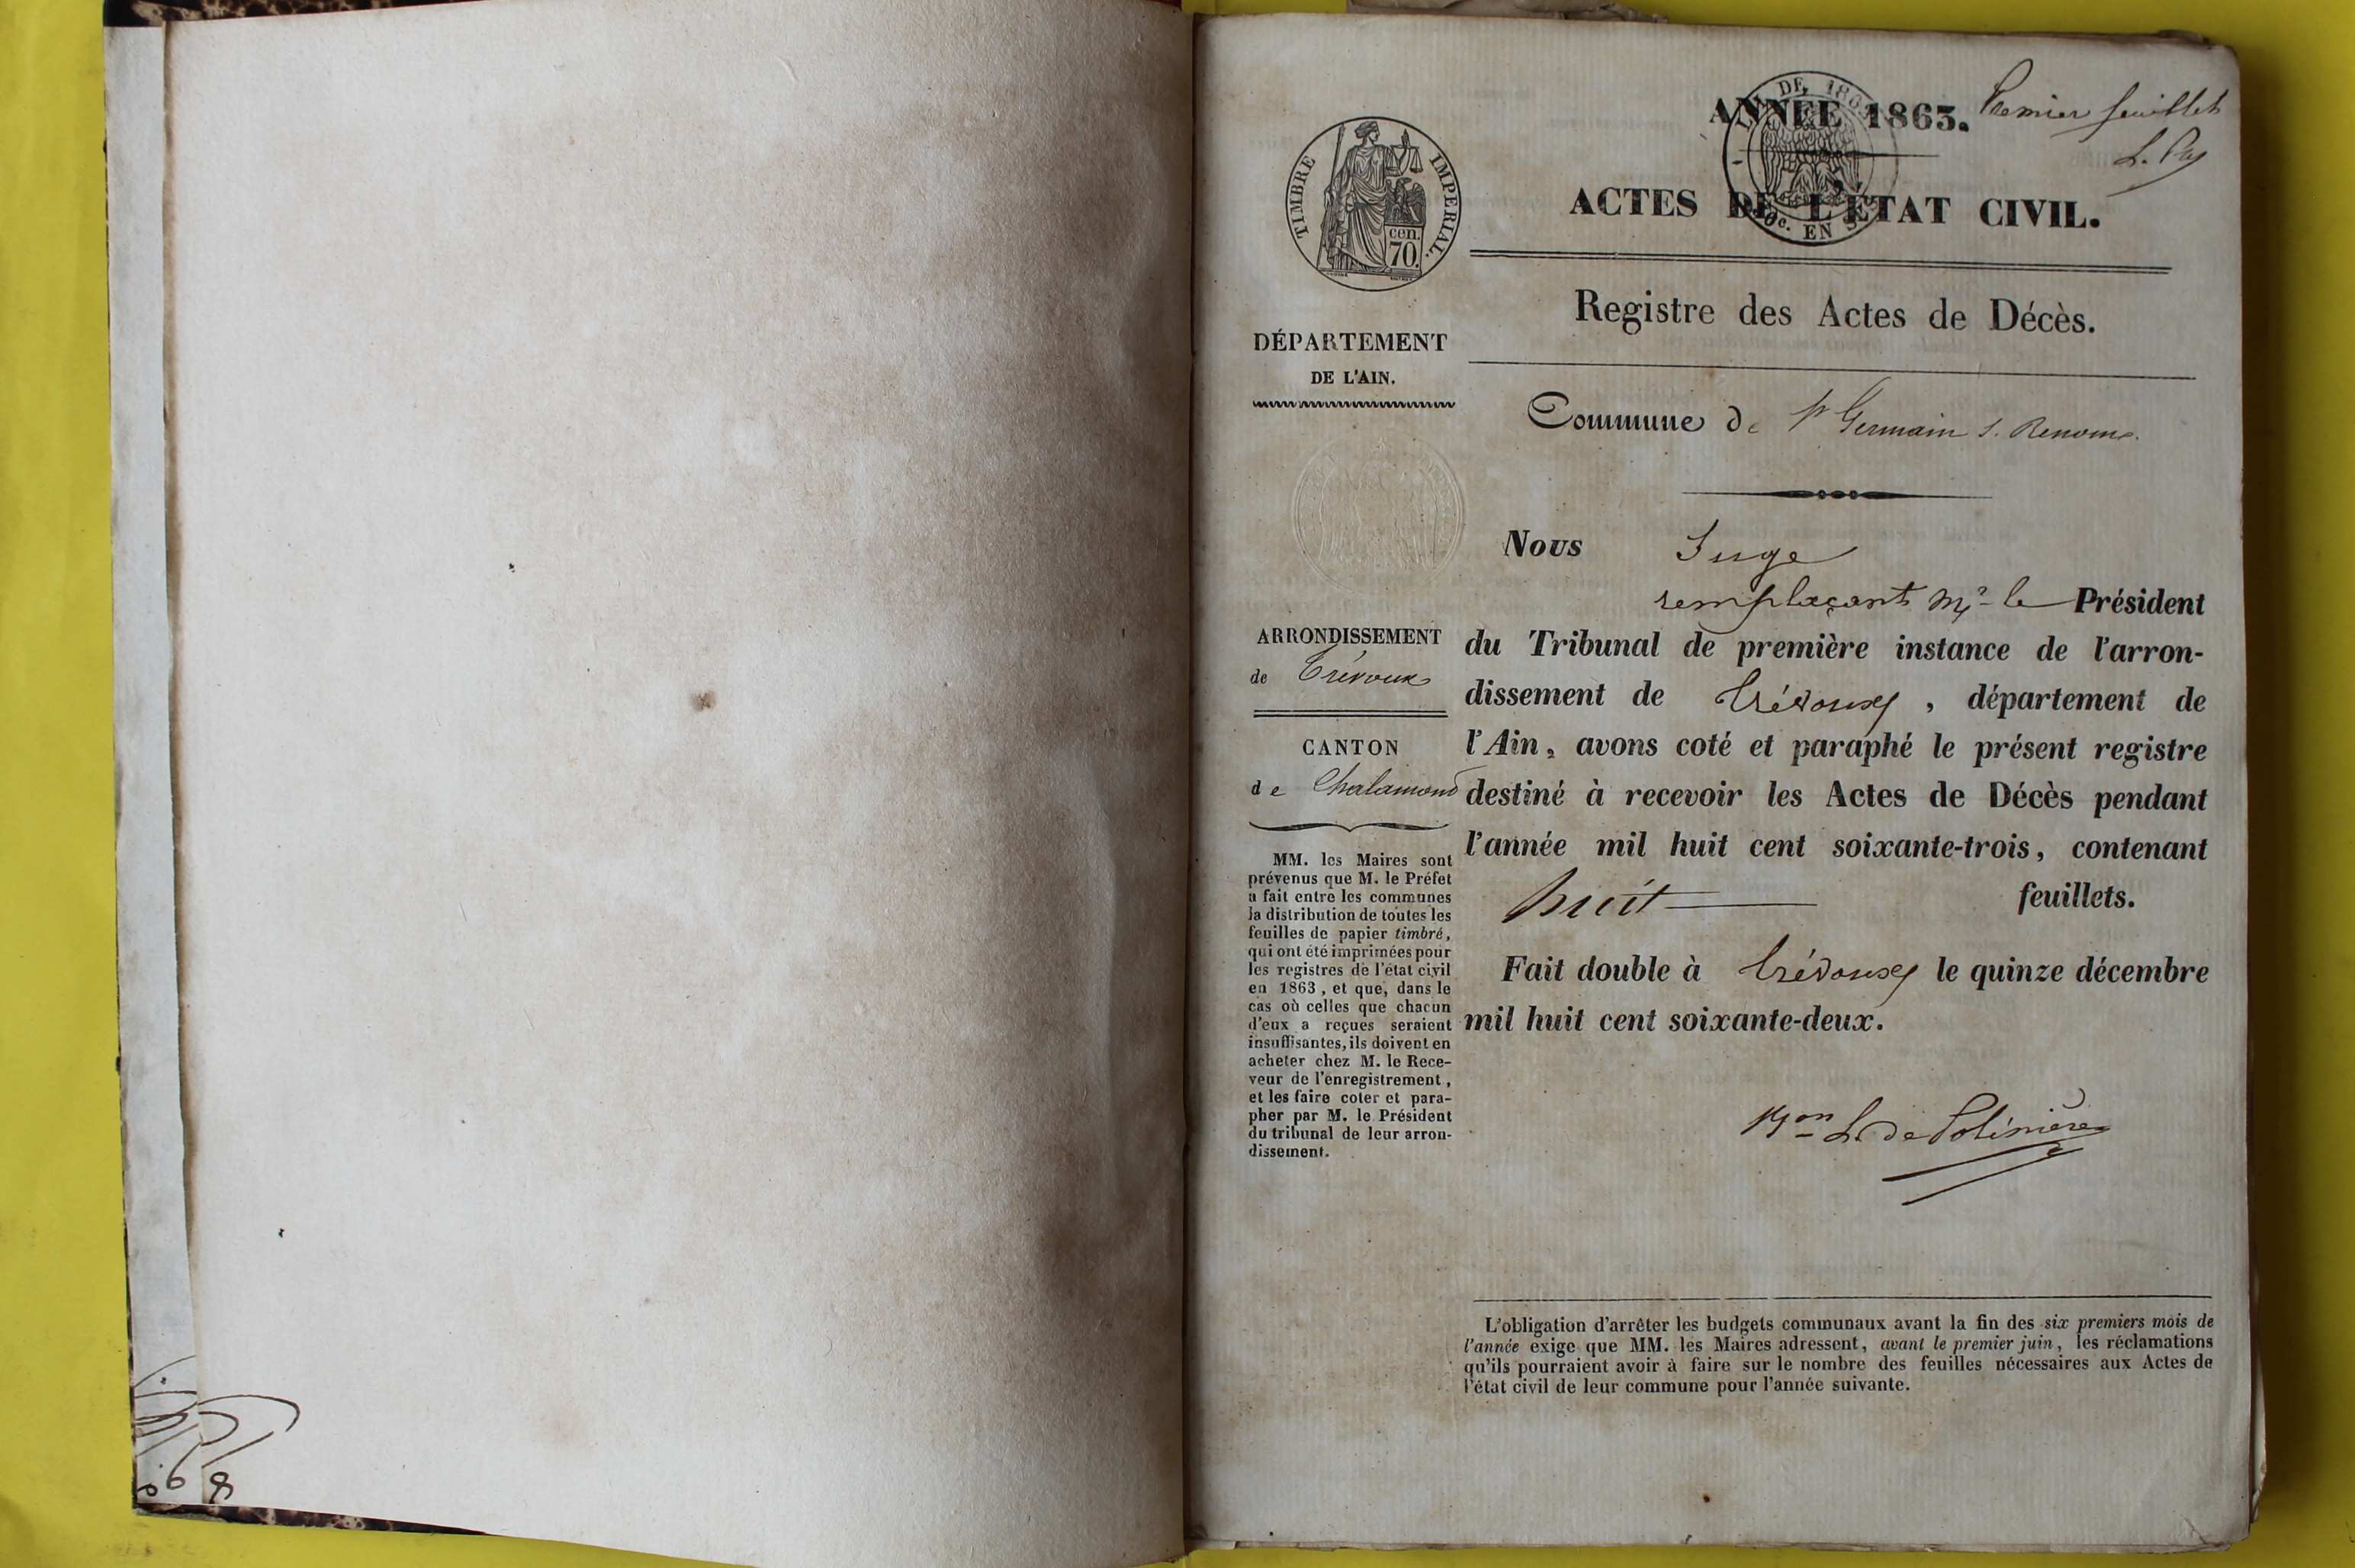 ANNÉE 1863. Premier feuillet
TIMBRE IMPERIAL.
cen.
70.
DE 186
EN S
ACTES DE L'ÉTAT CIVIL.
Registre des Actes de Décès.
DÉPARTEMENT
DE L'AIN.
Commune de St Germain s. Renom.
Nous Juge
remplaçant Mr le Président
du Tribunal de première instance de l'arron-
dissement de Trévoux, département de
l'Ain, avons coté et paraphé le présent registre
destiné à recevoir les Actes de Décès pendant
l'année mil huit cent soixante-trois, contenant
huit feuillets.
Fait double à Trévoux le quinze décembre
mil huit cent soixante-deux.
Bon L. de Polinière
ARRONDISSEMENT
de Trévoux
CANTON
de Chalamont
MM. les Maires sont
prévenus que M. le Préfet
a fait entre les communes
la distribution de toutes les
feuilles de papier timbré,
qui ont été imprimées pour
les registres de l'état civil
en 1863, et que, dans le
cas où celles que chacun
d'eux a reçues seraient
insuffisantes, ils doivent en
acheter chez M. le Rece-
veur de l'enregistrement,
et les faire coter et para-
pher par M. le Président
du tribunal de leur arron-
dissement.
L'obligation d'arrêter les budgets communaux avant la fin des six premiers mois de
l'année exige que MM. les Maires adressent, avant le premier juin, les réclamations
qu'ils pourraient avoir à faire sur le nombre des feuilles nécessaires aux Actes de
l'état civil de leur commune pour l'année suivante.